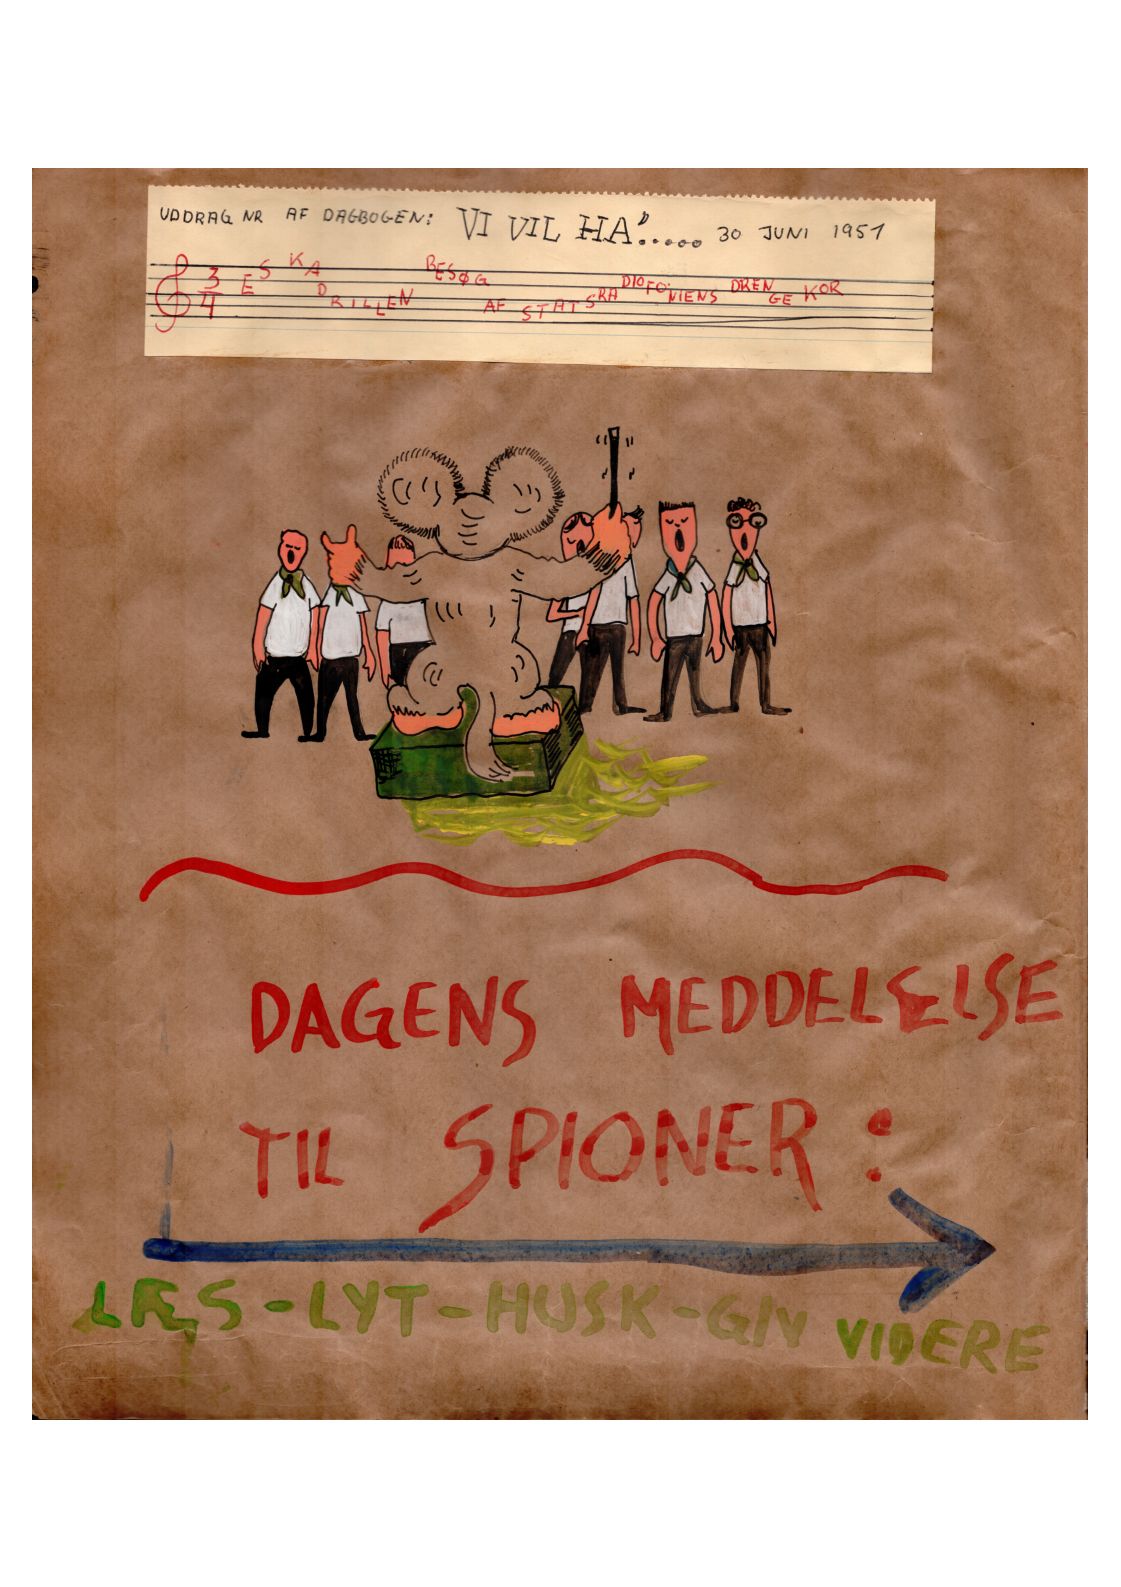 UDDRAG NR AF DAGBOGEN: "VI VIL HA"..... 30 JUNI 1951
3/4 ESKADRILLEN BESØG AF STATSRADIOFONIENS DRENGEKOR
DAGENS MEDDELELSE
TIL SPIONER:
LÆS-LYT-HUSK-GIV VIDERE